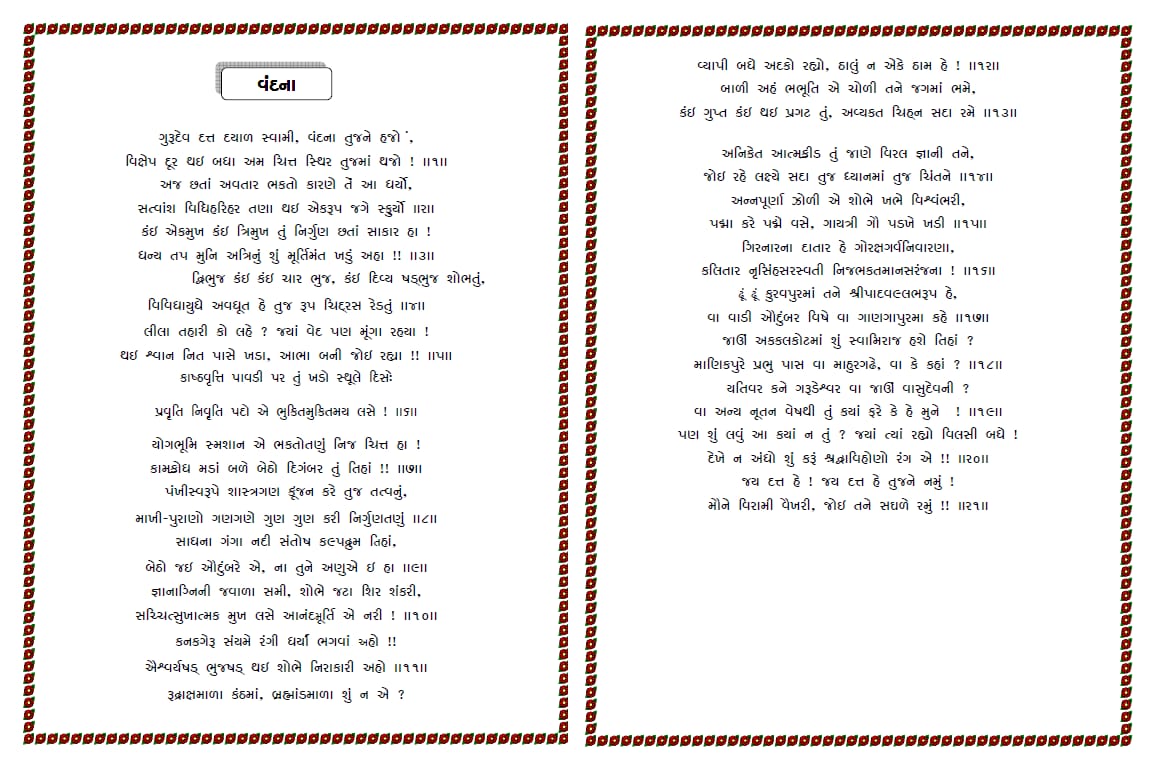 વંદના
ગુરૂદેવ દત્ત દયાળ સ્વામી, વંદના તુજને હજો ં,
વિક્ષેપ દૂર થઇ બધા અમ ચિત્ત સ્થિર તુજમાં થજો ! ॥૧॥
અજ છતાં અવતાર ભકતો કારણે તેં આ ધર્યો,
સત્વાંશ વિધિહરિહર તણા થઇ એકરૂપ જગે સ્ફુર્યો ॥૨॥
કંઇ એકમુખ કંઇ ત્રિમુખ તું નિર્ગુણ છતાં સાકાર હા !
ધન્ય તપ મુનિ અત્રિનું શું મૂર્તિમંત ખડું અહા !! ॥૩॥
દ્વિભુજ કંઇ કંઇ ચાર ભુજ, કંઇ દિવ્ય ષડ્ભુજ શોભતું,
વિવિધાયુધે અવધૂત હે તુજ રૂપ ચિદ્રસ રેડતું ॥૪॥
લીલા તહારી કો લહે ? જ્યાં વેદ પણ મૂંગા રહયા !
થઇ શ્વાન નિત પાસે ખડા, આભા બની જોઇ રહ્યા !! ॥૫॥
કાષ્ઠવૃત્તિ પાવડી પર તું ખડો સ્થૂલે દિસેઃ
પ્રવૃતિ નિવૃતિ પદો એ ભુકિતમુકિતમય લસે ! ॥૬॥
યોગભૂમિ સ્મશાન એ ભકતોતણું નિજ ચિત્ત હા !
કામક્રોધ મડાં બળે બેઠો દિગંબર તું તિહાં !! ॥૭॥
પંખીસ્વરૂપે શાસ્ત્રગણ કૂંજન કરે તુજ તત્વનું,
માખી-પુરાણો ગણગણે ગુણ ગુણ કરી નિર્ગુણતણું ॥૮॥
સાધના ગંગા નદી સંતોષ કલ્પદ્રુમ તિહાં,
બેઠો જઇ ઔદુંબરે એ, ના તુને અણુએ ઇ હા ॥૯॥
જ્ઞાનાગ્નિની જવાળા સમી, શોભે જટા શિર શંકરી,
સચ્ચિત્સુખાત્મક મુખ લસે આનંદમૂર્તિ એ નરી ! ॥૧૦॥
કનકગેરૂ સંયમે રંગી ધર્યા ભગવાં અહો !!
ઐશ્વર્યષડ્ ભુજષડ્ થઇ શોભે નિરાકારી અહો ॥૧૧॥
રૂદ્રાક્ષમાળા કંઠમાં, બ્રહ્માંડમાળા શું ન એ ?
વ્યાપી બધે અદકો રહ્યો, ઠાલું ન એકે ઠામ હે ! ॥૧૨॥
બાળી અહં ભભૂતિ એ ચોળી તને જગમાં ભમે,
કંઇ ગુપ્ત કંઇ થઇ પ્રગટ તું, અવ્યકત ચિહ્ન સદા રમે ॥૧૩॥
અનિકેત આત્મક્રીડ તું જાણે વિરલ જ્ઞાની તને,
જોઇ રહે લક્ષ્યે સદા તુજ ધ્યાનમાં તુજ ચિંતને ॥૧૪॥
અન્નપૂર્ણા ઝોળી એ શોભે ખભે વિશ્વંભરી,
પદ્મા કરે પદ્મે વસે, ગાયત્રી ગૌ પડખે ખડી ॥૧૫॥
ગિરનારના દાતાર હે ગોરક્ષગર્વનિવારણા,
કલિતાર નૃસિંહસરસ્વતી નિજભકતમાનસરંજના ! ॥૧૬॥
ઢૂં ઢૂં કુરવપુરમાં તને શ્રીપાદવલ્લભરૂપ હે,
વા વાડી ઔદુંબર વિષે વા ગાણગાપુરમા કહે ॥૧૭॥
જાઊં અકકલકોટમાં શું સ્વામિરાજ હશે તિહાં ?
માણિકપુરે પ્રભુ પાસ વા માહુરગઢે, વા કે કહાં ? ॥૧૮॥
યતિવર કને ગરૂડેશ્વર વા જાઊં વાસુદેવની ?
વા અન્ય નૂતન વેષથી તું ક્યાં ફરે કે હે મુને ! ॥૧૯॥
પણ શું લવું આ કયાં ન તું ? જયાં ત્યાં રહ્યો વિલસી બધે !
દેખે ન અંધો શું કરૂં શ્રદ્ધાવિહોણો રંગ એ !! ॥૨૦॥
જય દત્ત હે ! જય દત્ત હે તુજને નમું !
મૌને વિરામી વૈખરી, જોઇ તને સઘળે રમું !! ॥૨૧॥